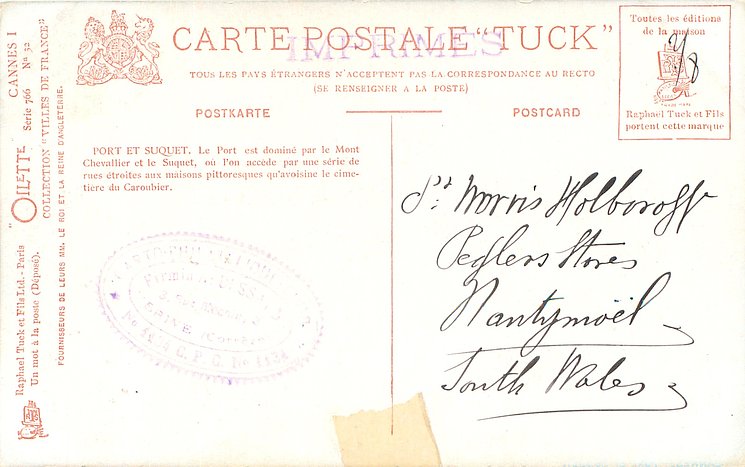 CARTE POSTALE "TUCK"
IMPRIMÉS
TOUS LES PAYS ÉTRANGERS N'ACCEPTENT PAS LA CORRESPONDANCE AU RECTO
(SE RENSEIGNER A LA POSTE)
POSTKARTE
POSTCARD
Toutes les éditions
de la maison
Raphael Tuck et Fils
portent cette marque
PORT ET SUQUET. Le Port est dominé par le Mont
Chevallier et le Suquet, où l'on accède par une série de
rues étroites aux maisons pittoresques qu'avoisine le cime-
tière du Caroubier.
Morris Holboroff
Peglers Stores
Nantymoël
South Wales
CANNES I
Serie 766 No 32
"OILETTE"
COLLECTION "VILLES DE FRANCE"
Raphael Tuck et Fils Ltd. - Paris
Un mot à la poste (Déposé).
FOURNISSEURS DE LEURS MM. LE ROI ET LA REINE D'ANGLETERRE.